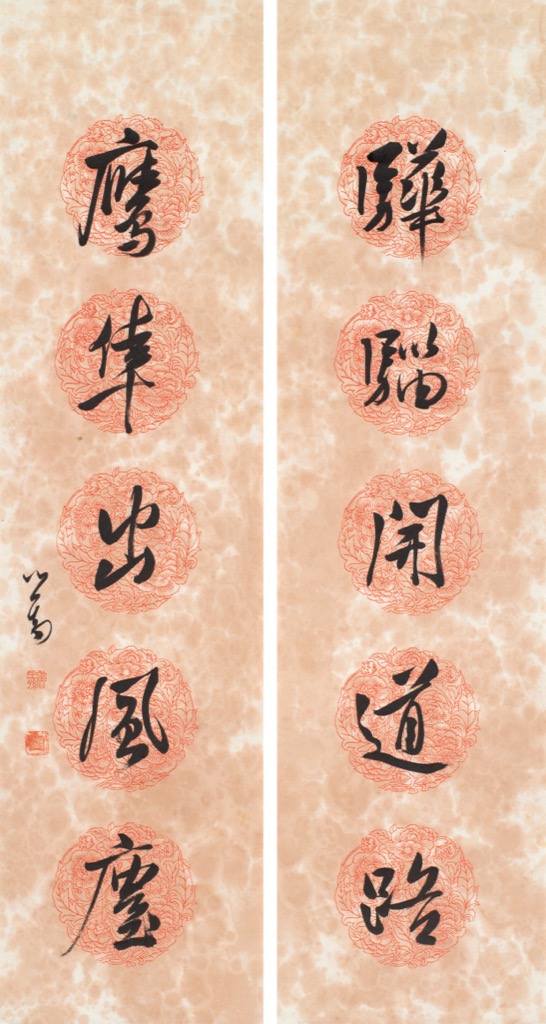 驊騮開道路
鷹隼出風塵
心畬